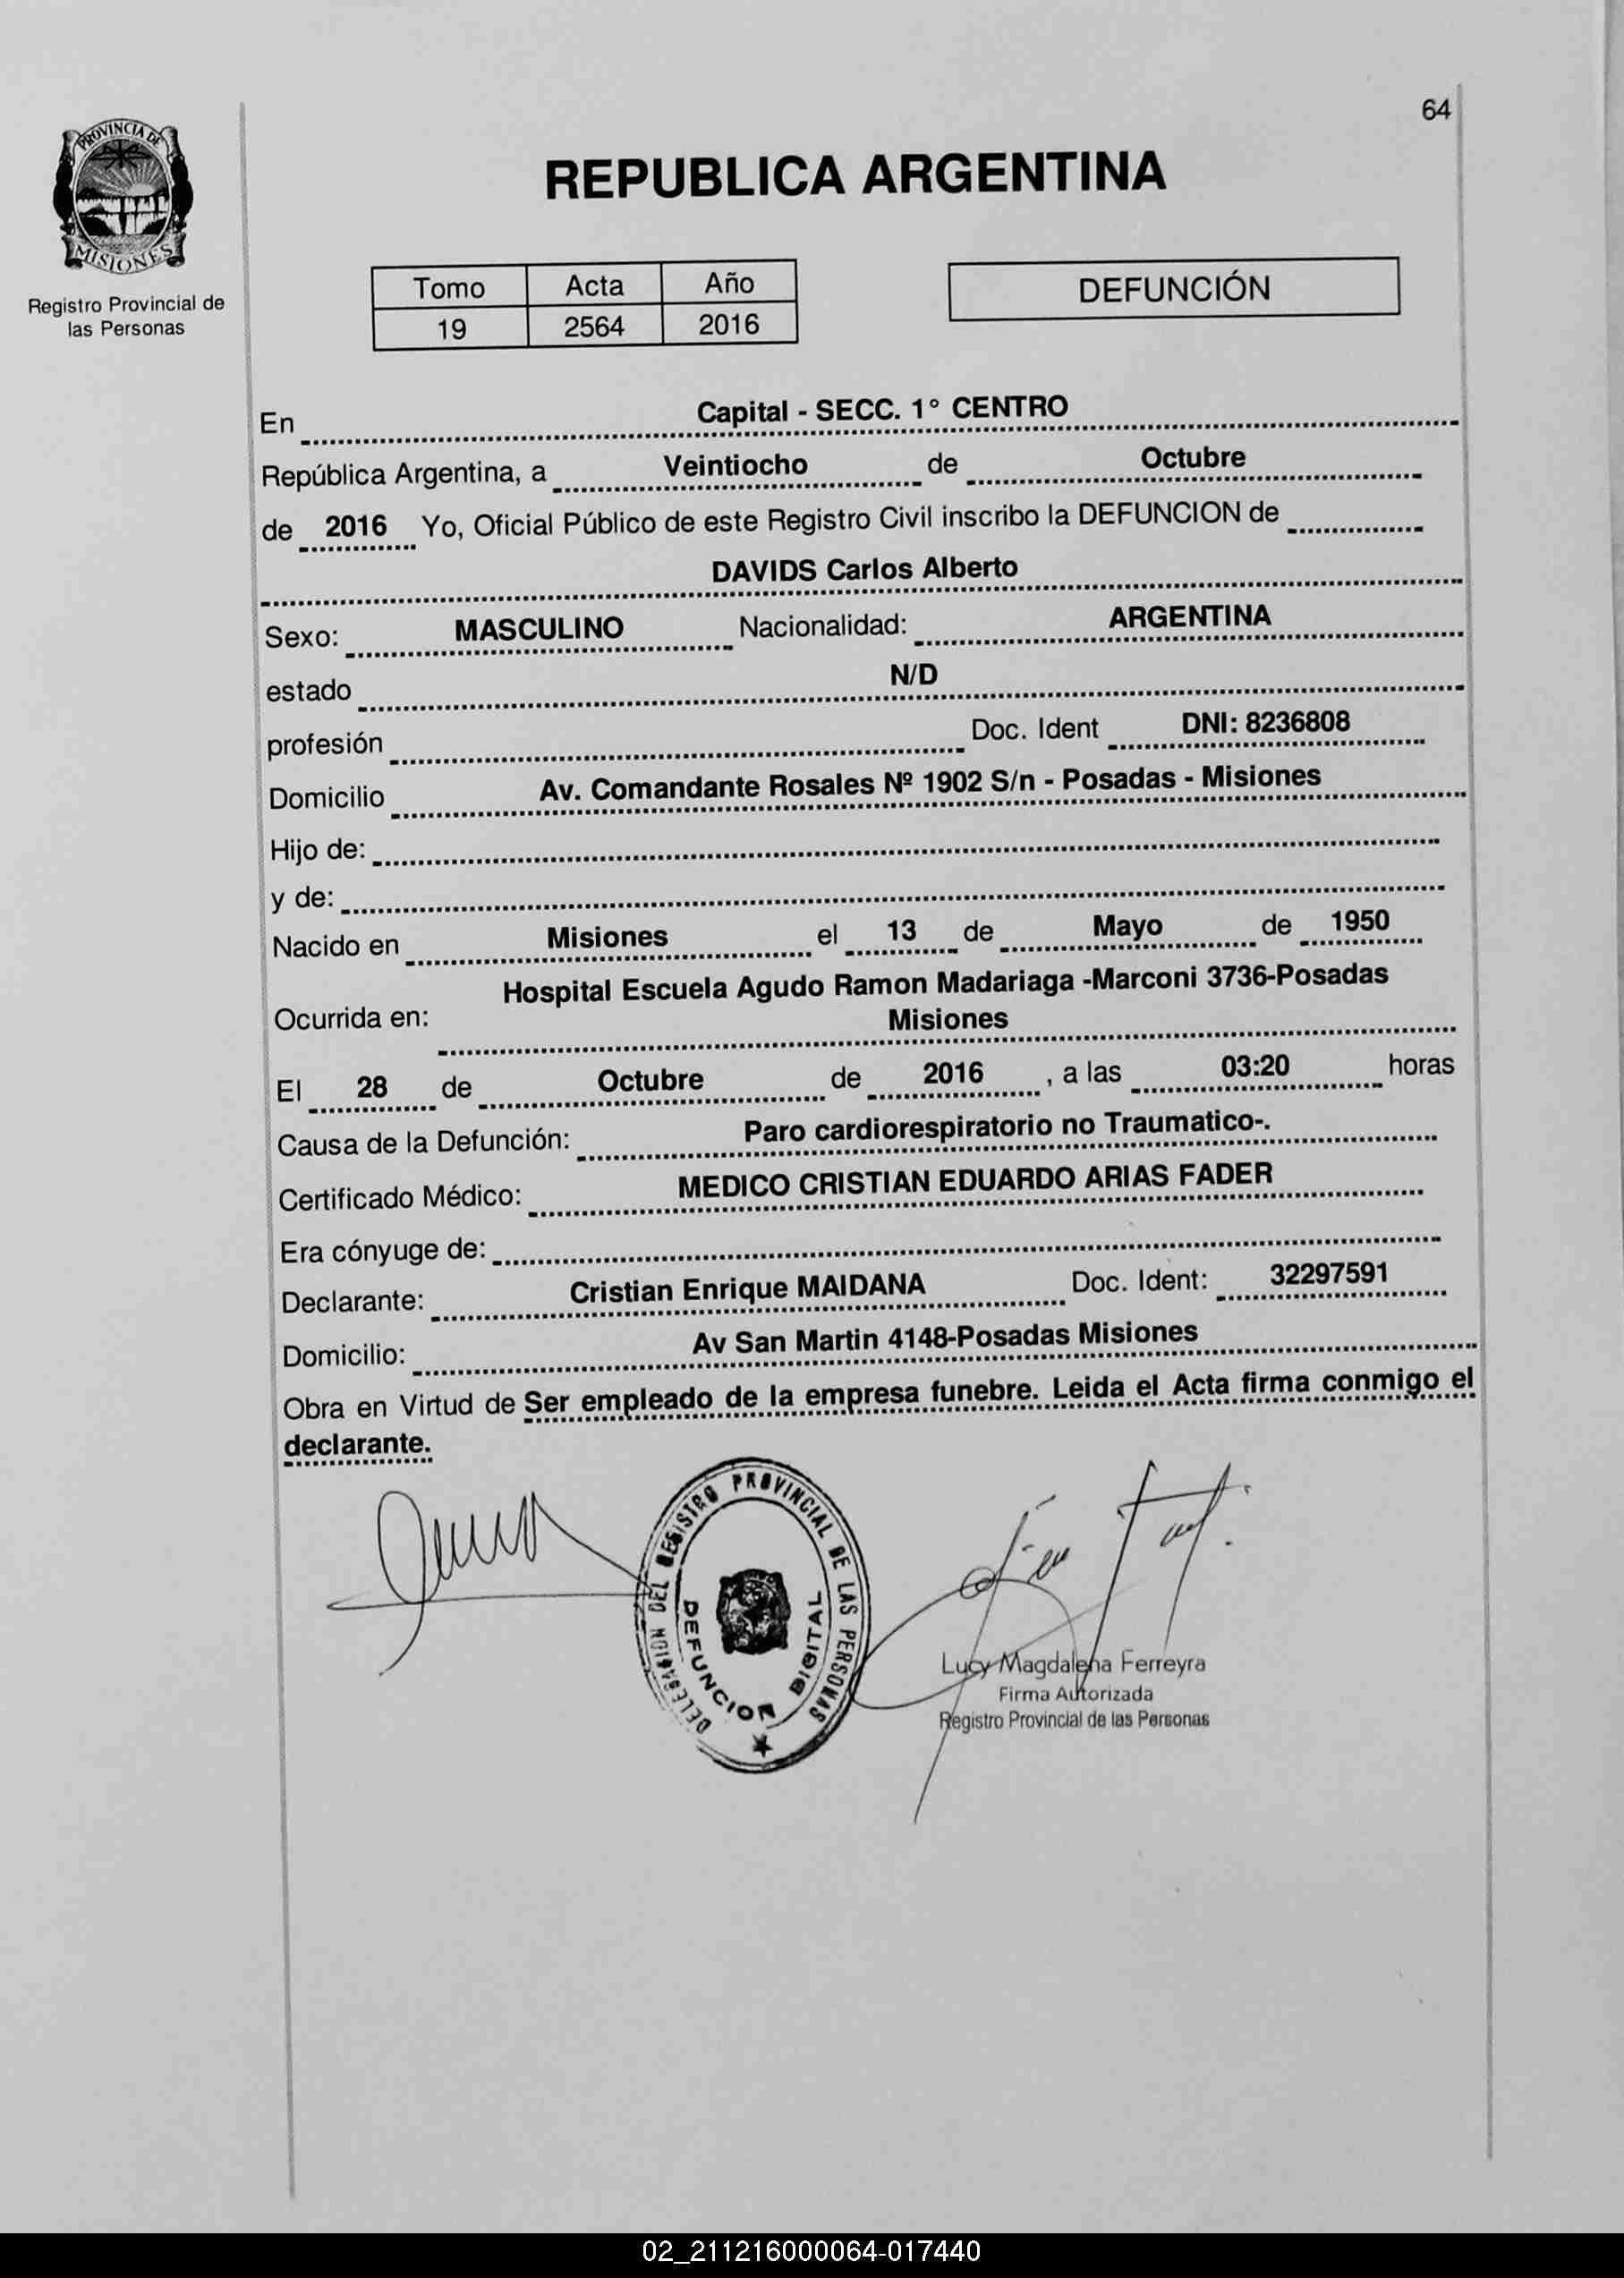 64
PROVINCIA DE
MISIONES
Registro Provincial de
las Personas
REPUBLICA ARGENTINA
Tomo Acta Año
19 2564 2016
DEFUNCIÓN
En Capital - SECC. 1° CENTRO
República Argentina, a Veintiocho de Octubre
de 2016 Yo, Oficial Público de este Registro Civil inscribo la DEFUNCION de
DAVIDS Carlos Alberto
Sexo: MASCULINO Nacionalidad: ARGENTINA
estado N/D
profesión Doc. Ident DNI: 8236808
Domicilio Av. Comandante Rosales Nº 1902 S/n - Posadas - Misiones
Hijo de:
y de:
Nacido en Misiones el 13 de Mayo de 1950
Hospital Escuela Agudo Ramon Madariaga -Marconi 3736-Posadas
Ocurrida en: Misiones
El 28 de Octubre de 2016 , a las 03:20 horas
Causa de la Defunción: Paro cardiorespiratorio no Traumatico-.
Certificado Médico: MEDICO CRISTIAN EDUARDO ARIAS FADER
Era cónyuge de:
Declarante: Cristian Enrique MAIDANA Doc. Ident: 32297591
Domicilio: Av San Martin 4148-Posadas Misiones
Obra en Virtud de Ser empleado de la empresa funebre. Leida el Acta firma conmigo el
declarante.
DELEGACION DEL REGISTRO PROVINCIAL DE LAS PERSONAS
DEFUNCION DIGITAL
Lucy Magdalena Ferreyra
Firma Autorizada
Registro Provincial de las Personas
02_211216000064-017440